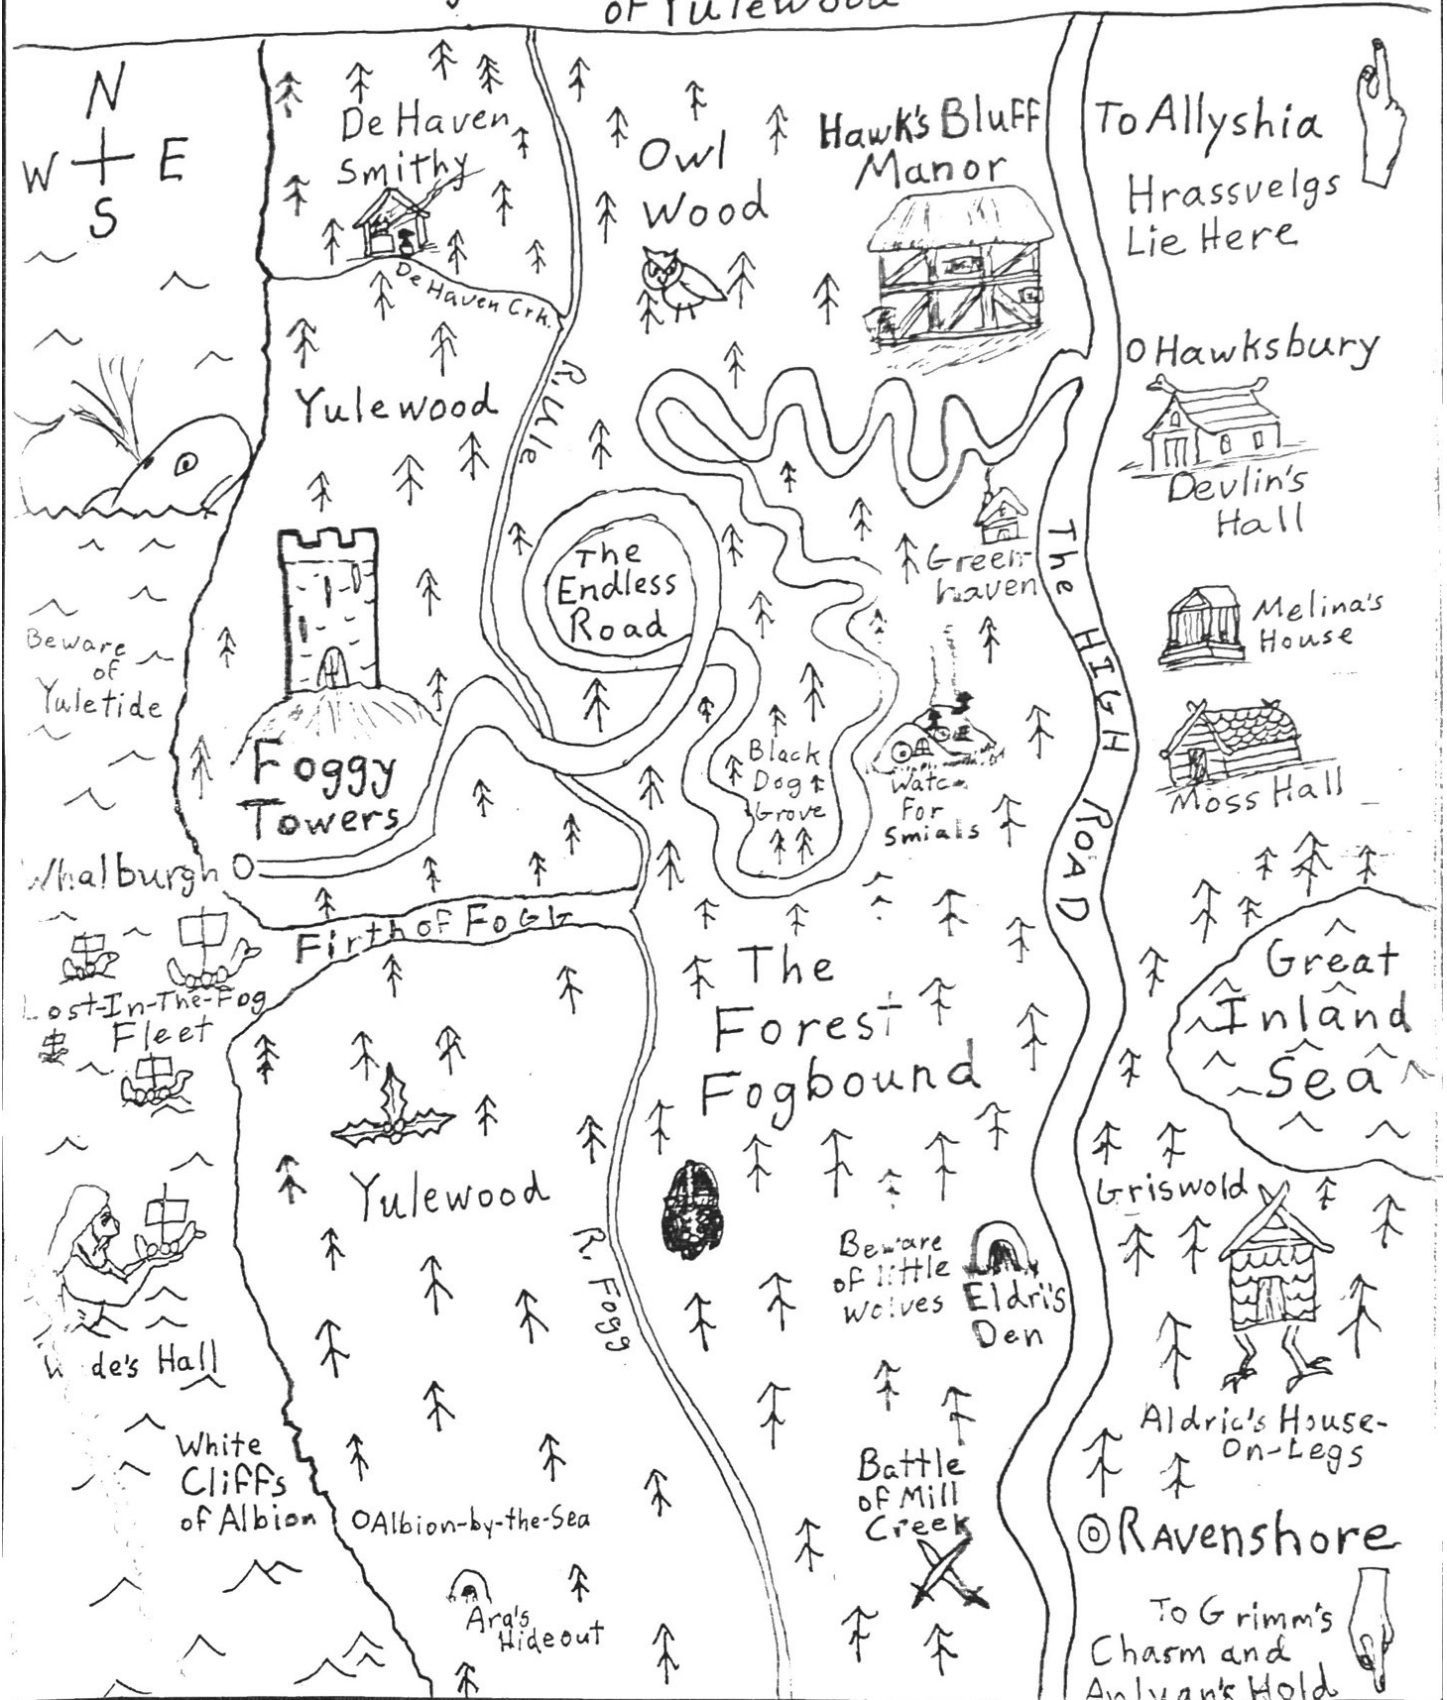 of Yulewood
N
W E
S
De Haven
Smithy
De Haven Crk.
Owl
Wood
Hawk's Bluff
Manor
To Allyshia
Hrassvelgs
Lie Here
O Hawksbury
Devlin's
Hall
Yulewood
R. Yule
The
Endless
Road
Green-
haven
The HIGH ROAD
Melina's
House
Moss Hall
Beware
of
Yuletide
Foggy
Towers
Black
Dog
Grove
Watch
For
Smials
Whalburgh O
Firth of Fogg
Lost-In-The-Fog
Fleet
The
Forest
Fogbound
Great
Inland
Sea
Griswold
Yulewood
R. Fogg
Beware
of little
Wolves
Eldri's
Den
Hall
Aldric's House-
On-Legs
White
Cliffs
of Albion
O Albion-by-the-Sea
Battle
of Mill
Creek
Ravenshore
Hideout
To Grimm's
Chasm and
Hold